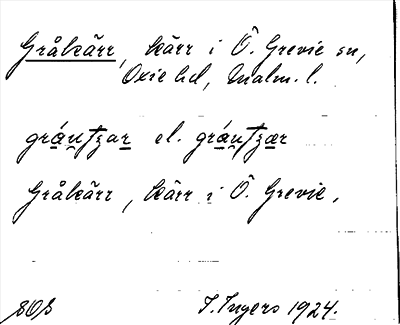 Gråkärr, kärr i Ö. Grevie sn,
Oxie hd, Malm. l.
gráu̯tʒar el. gráu̯tʒær
Gråkärr, kärr i Ö. Grevie,
I. Ingers 1924.